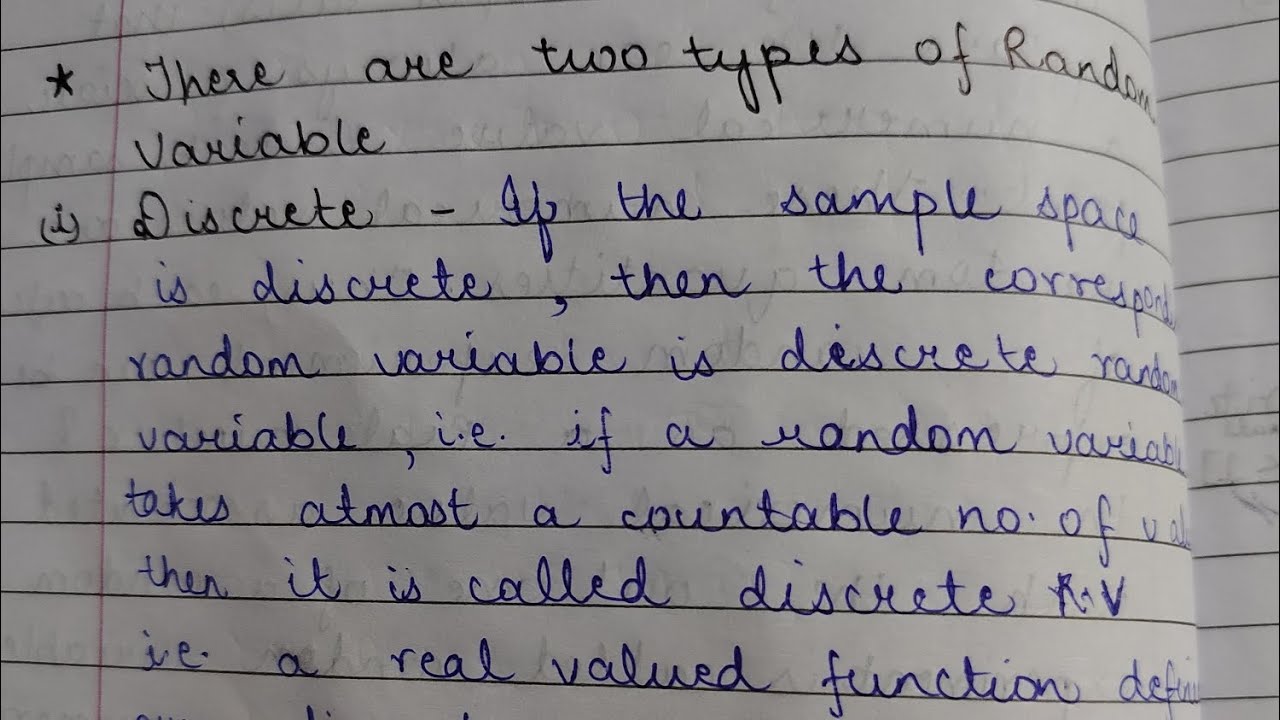 * There are two types of Random
variable
(i) Discrete - If the sample space
is discrete, then the correspond
random variable is discrete random
variable, i.e. if a random variabl
takes atmost a countable no. of val
then it is called discrete R.V
i.e. a real valued function defin